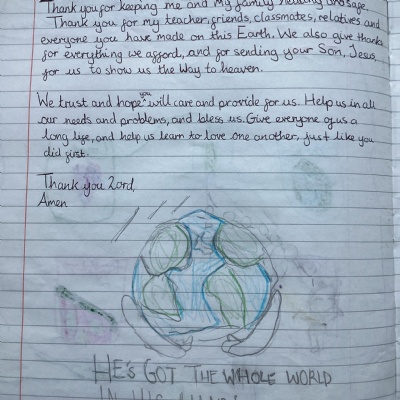 Thank you for keeping me and my family healthy and safe.
Thank you for my teacher, friends, classmates, relatives and
everyone you have made on this Earth. We also give thanks
for everything we afford, and for sending your Son, Jesus,
for us to show us the Way to heaven.
We trust and hope you will care and provide for us. Help us in all
our needs and problems, and bless us. Give everyone of us a
long life, and help us learn to love one another, just like you
did first.
Thank you Lord,
Amen
HE'S GOT THE WHOLE WORLD
IN HIS